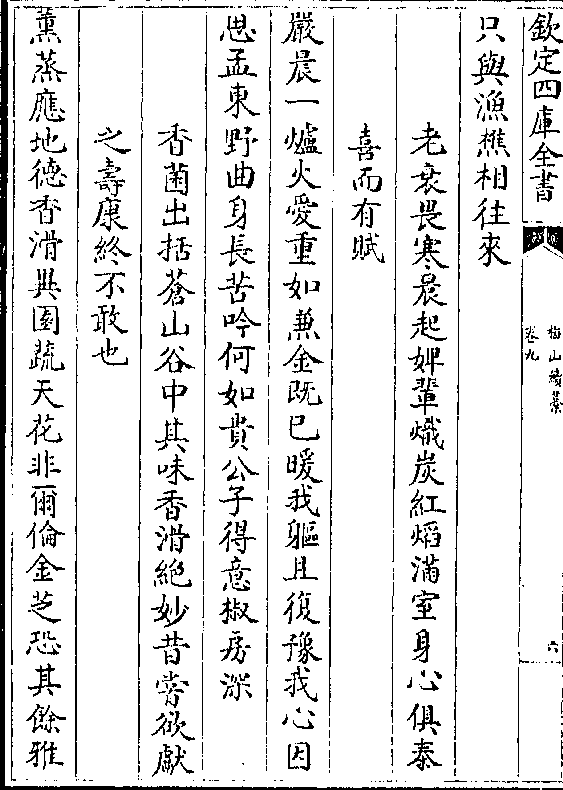 欽定四庫全書
梅山續藁
卷九
六
只與漁樵相往來
老衰畏寒晨起婢輩熾炭紅焰滿室身心俱泰
喜而有賦
嚴晨一爐火愛重如兼金既已暖我軀且復豫我心因
思孟東野曲身長苦吟何如貴公子得意椒房深
香菌出括蒼山谷中其味香滑絶妙昔嘗欲獻
之壽康終不敢也
薰蒸應地德香滑異園蔬天花非爾倫金芝恐其餘雅